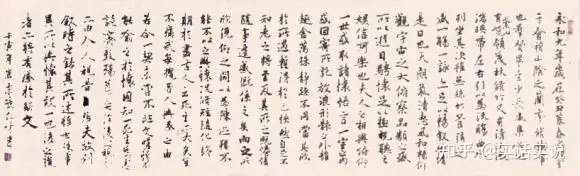 永和九年歲在癸丑暮春之初
于會稽山陰之蘭亭脩禊事
也群賢畢至少長咸集此地
有崇山峻領茂林脩竹又有清流激
湍映帶左右引以為流觴曲水
列坐其次雖無絲竹管弦之盛
一觴一詠亦足以暢敘幽情
是日也天朗氣清惠風和暢仰
觀宇宙之大俯察品類之盛
所以遊目騁懷足以極視聽之
娛信可樂也夫人之相與俯仰
一世或取諸懷抱悟言一室之內
或因寄所託放浪形骸之外雖
趣舍萬殊靜躁不同當其欣
於所遇暫得於己快然自足不
知老之將至及其所之既倦情
隨事遷感慨係之矣向之所
欣俛仰之間以為陳迹猶不
能不以之興懷況脩短隨化終
期於盡古人云死生亦大矣豈
不痛哉每攬昔人興感之由
若合一契未嘗不臨文嗟悼不
能喻之於懷固知一死生為虛
誕齊彭殤為妄作後之視今
亦由今之視昔悲夫故列
敘時人錄其所述雖世殊事
異所以興懷其致一也後之攬
者亦將有感於斯文
壬寅年
知乎 @笑话实说